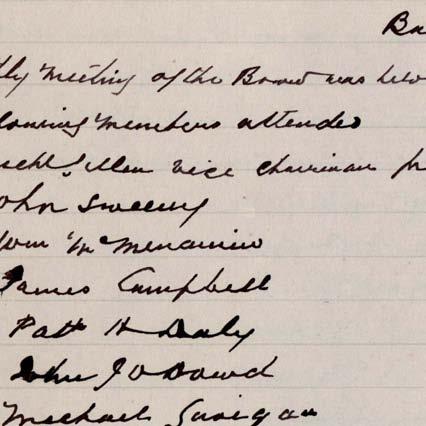 Bo
tly Meeting of the Board was held
lowing Members attended
vice chairman pr
ohn Sweeny
McMenamin
James Campbell
Patk H Daly
John J O Dowd
Michael Gavigan